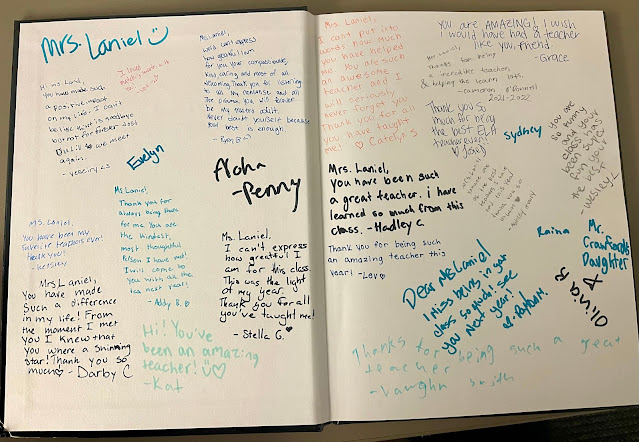 Mrs. Laniel
Hi Ms. Laniel,
You have made such
a positive impact
on my life. I can't
again.
Evelyn
Ms. Laniel,
words can't express
how grateful I am
for you. Your compassionate,
kind caring and most of all
welcoming. Thank you for listening
to all my nonsense and all
the drama. You will forever
be my trusted adult.
Never doubt yourself because
your best is enough.
- Ryan B
Aloha
- Penny
Ms. Laniel,
Thank you for
always being there
for me. You are
the kindest,
most thoughtful
Person I have met!
I will come to
you with all the
tea next year!
- Addy B.
Ms. Laniel,
You have been my
favorite teacher ever!
thank you!!
Ms. Laniel.
I can't express
how greatful I
am for this class.
This was the light
of my year.
Thank you for all
you've taught me!
- Stella G.
Mrs Laniel,
You have made
Such a difference
in my life! From
the moment I met
you I knew that
you where a shinning
star! Thank you so
much♡ - Darby C
Hi! You've
been an amazing
teacher!
- Kat
Ms. Laniel,
I can't put into
words how much
you have helped
me. You are such
an awesome
teacher and I
will seriously
never forget you
Thank you for all
you have taught
me!
You are AMAZING! I wish
I would have had a teacher
like you, friend
- Grace
thanks for being
a incredible teacher,
& helping me learn lots.
2021-2022
Thank you so
much for being
the best ELA
teacher ever!
Sydney
You are
so funny
and your
class has
been
the best
- Wesley L
Mrs. Laniel,
You have been such
a great teacher. i have
learned so much from this
class. - Hadley C.
Thank you for being such
an amazing teacher this
year! - Lev
Raina
Mr.
Crawford's
Daughter
Olivia R
Dear Ms Laniel
I miss being in your
class so much! see
you Next year!
Thanks for being such a great
teacher
- Vaughn Smith